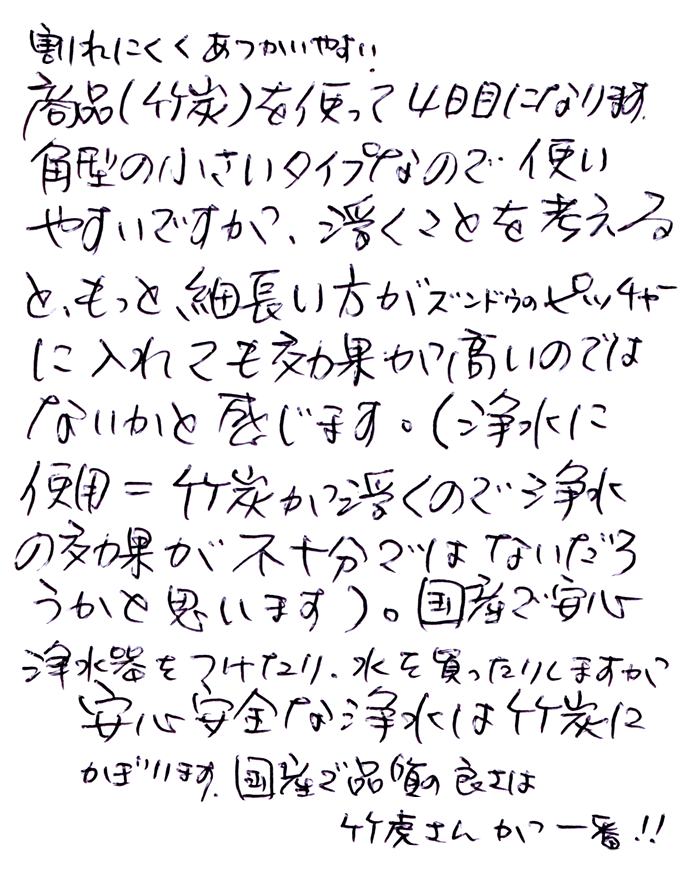 割れにくくあつかいやすい
商品(竹炭)を使って4日目になります。
角型の小さいタイプなので使い
やすいですが、浮くことを考える
と、もっと、細長い方がズンドウのピッチャー
に入れても効果が高いのでは
ないかと感じます。(浄水に
使用=竹炭が浮くので浄水
の効果が不十分ではないだろ
うかと思います)。国産で安心
浄水器をつけたり、水を買ったりしますが
安心安全な浄水は竹炭に
かぎります。国産で品質の良さは
竹虎さんが一番!!